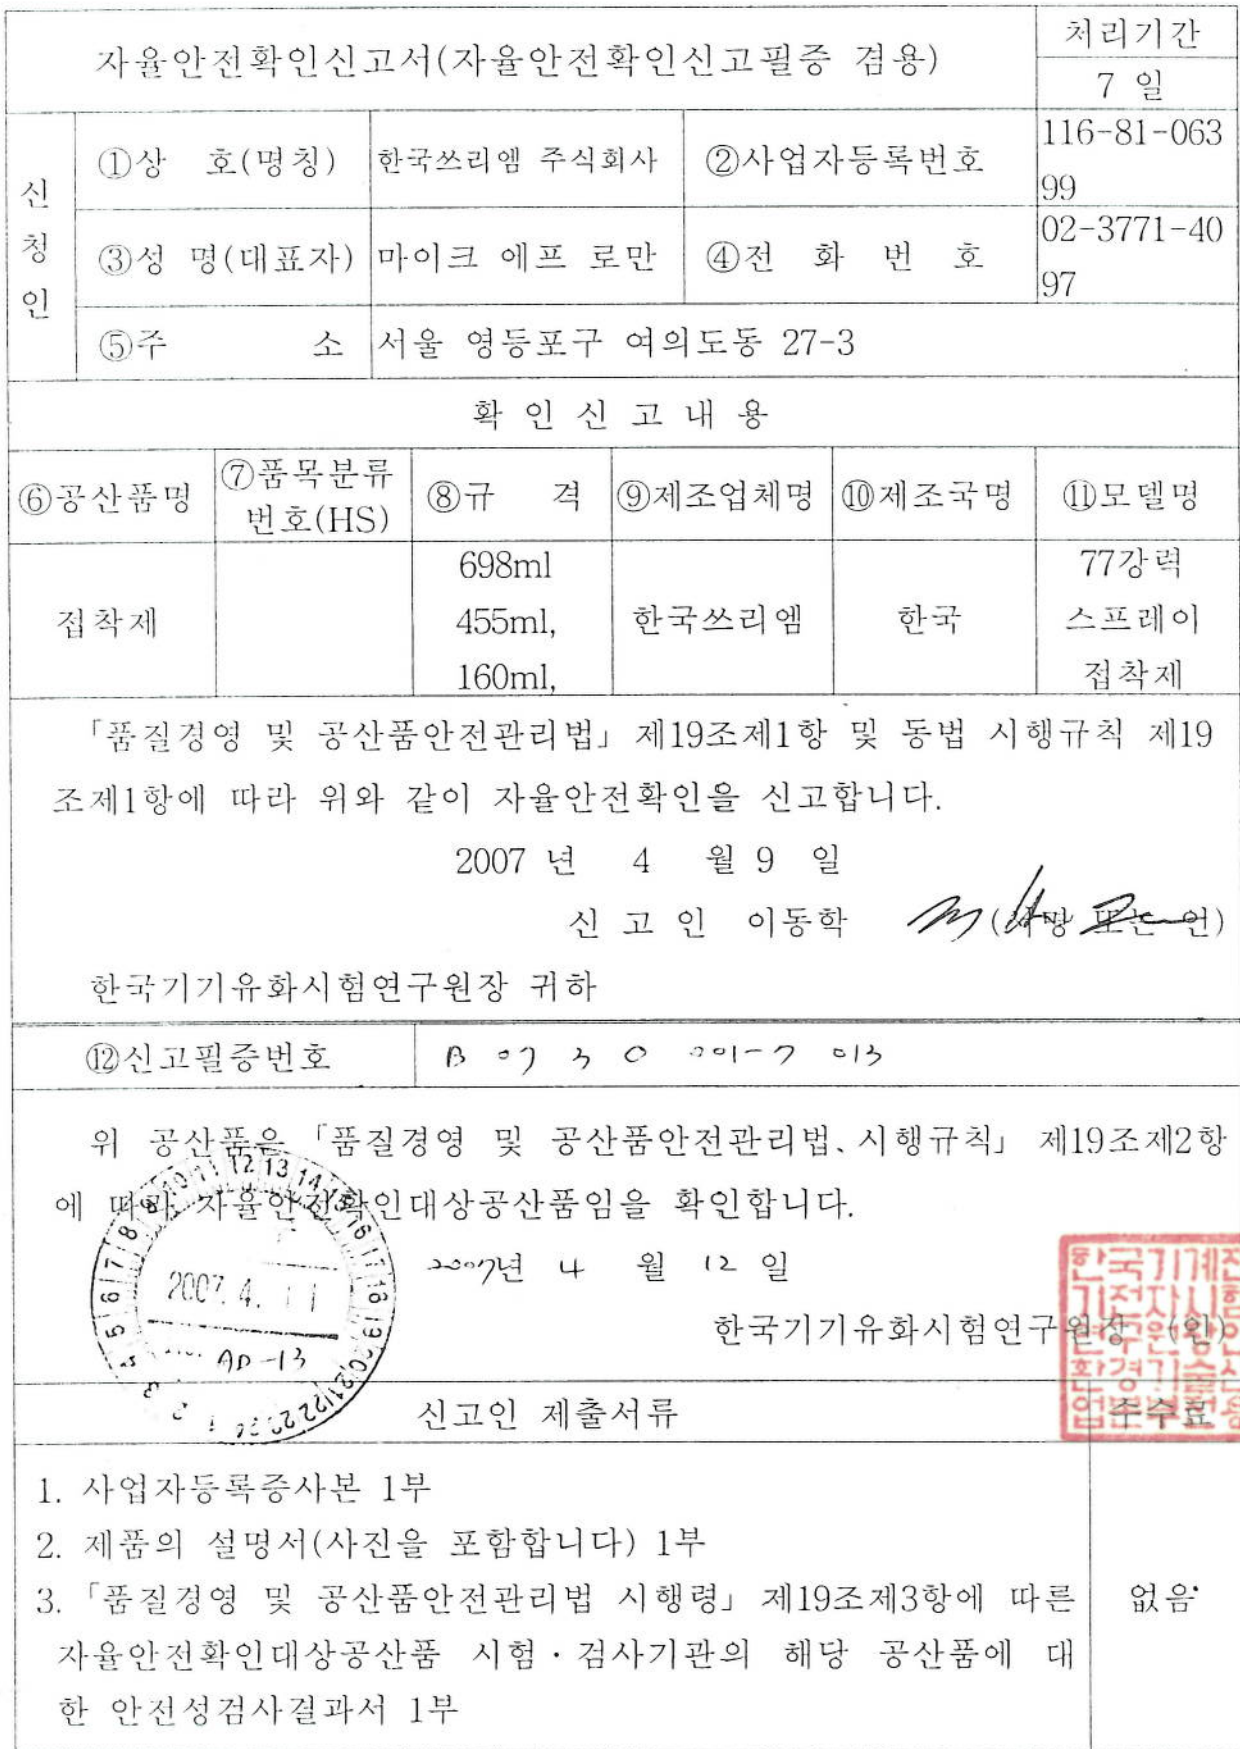 자율안전확인신고서(자율안전확인신고필증 겸용)
처리기간
7 일
신청인
①상 호(명칭)
한국쓰리엠 주식회사
②사업자등록번호
116-81-063
99
③성 명(대표자)
마이크 에프 로만
④전 화 번 호
02-3771-40
97
⑤주 소
서울 영등포구 여의도동 27-3
확 인 신 고 내 용
⑥공산품명
⑦품목분류
번호(HS)
⑧규 격
⑨제조업체명
⑩제조국명
⑪모델명
접착제
698ml
455ml,
160ml,
한국쓰리엠
한국
77강력
스프레이
접착제
「품질경영 및 공산품안전관리법」 제19조제1항 및 동법 시행규칙 제19
조제1항에 따라 위와 같이 자율안전확인을 신고합니다.
2007 년 4 월 9 일
신 고 인 이동학 (서명 또는 인)
한국기기유화시험연구원장 귀하
⑫신고필증번호
B 07 3 0 001-7 013
위 공산품은 「품질경영 및 공산품안전관리법、시행규칙」 제19조제2항
에 따라 자율안전확인대상공산품임을 확인합니다.
2007년 4 월 12 일
한국기기유화시험연구원장 (인)
1 2 3 4 5 6 7 8 9 10 11 12 13 14 15 16 17 18 19 20 21 22 23 24
2007. 4. 11
AD-13
신고인 제출서류
수수료
1. 사업자등록증사본 1부
2. 제품의 설명서(사진을 포함합니다) 1부
3.「품질경영 및 공산품안전관리법 시행령」 제19조제3항에 따른
자율안전확인대상공산품 시험·검사기관의 해당 공산품에 대
한 안전성검사결과서 1부
없음